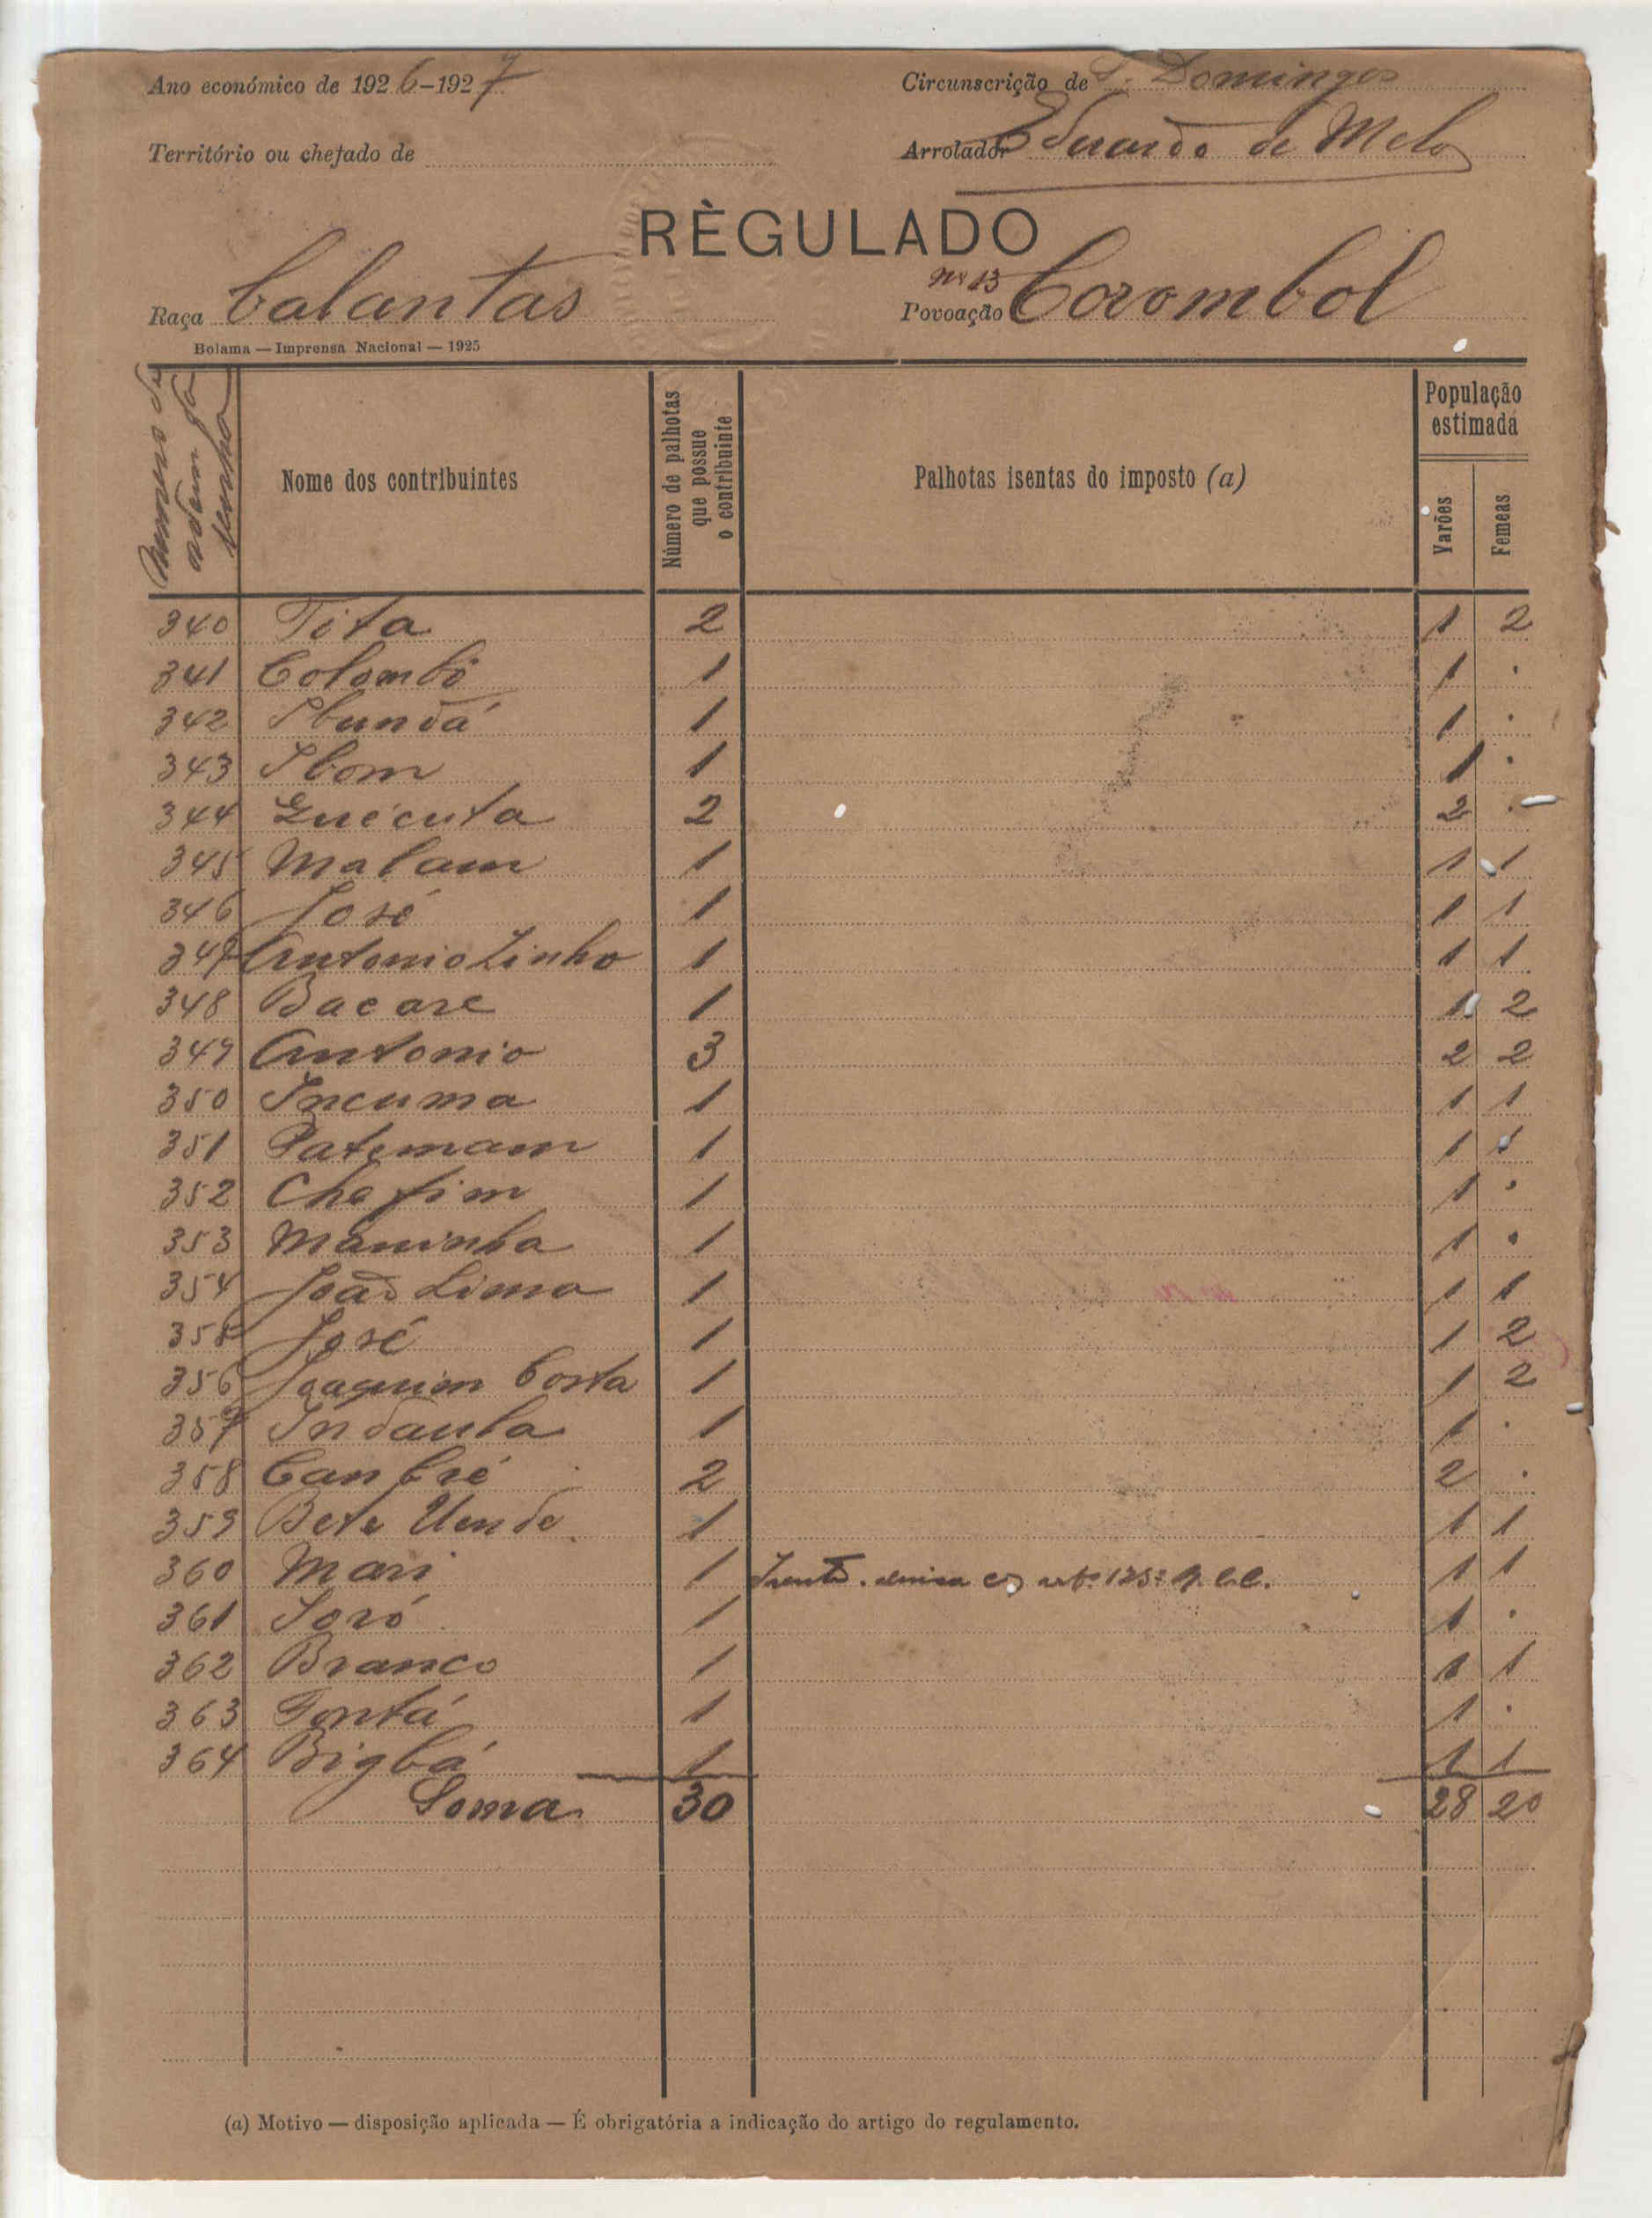 Ano económico de 1926-1927
Circunscrição de S. Domingos
Território ou chefado de
Arrolador Eduardo de Melo
RÈGULADO
Raça Balantas
Nº 13
Povoação Corombol
Bolama — Imprensa Nacional — 1925
Numero de
ordem da
senha
Nome dos contribuintes
Número de palhotas
que possue
o contribuinte
Palhotas isentas do imposto (a)
População
estimada
Varões
Femeas
340 Tita 2 1 2
341 Colombó 1 1 .
342 Ibundá 1 1 .
343 Ibom 1 1 .
344 Guécuta 2 2 .
345 Malam 1 1 1
346 José 1 1 1
347 Antonio Zinho 1 1 1
348 Bacare 1 1 2
349 Antonio 3 2 2
350 Incuma 1 1 1
351 Patemam 1 1 1
352 Chefim 1 1 .
353 Maninha 1 1 .
354 João Lima 1 1 1
355 José 1 1 2
356 Joaquim Costa 1 1 2
357 Indaula 1 1 .
358 Canbré 2 2 .
359 Bete Uende 1 1 1
360 Mari 1 1 1
361 Soró 1 1 .
362 Branco 1 1 1
363 Fontá 1 1 .
364 Bigbá 1 1 1
Soma 30 28 20
(a) Motivo — disposição aplicada — É obrigatória a indicação do artigo do regulamento.